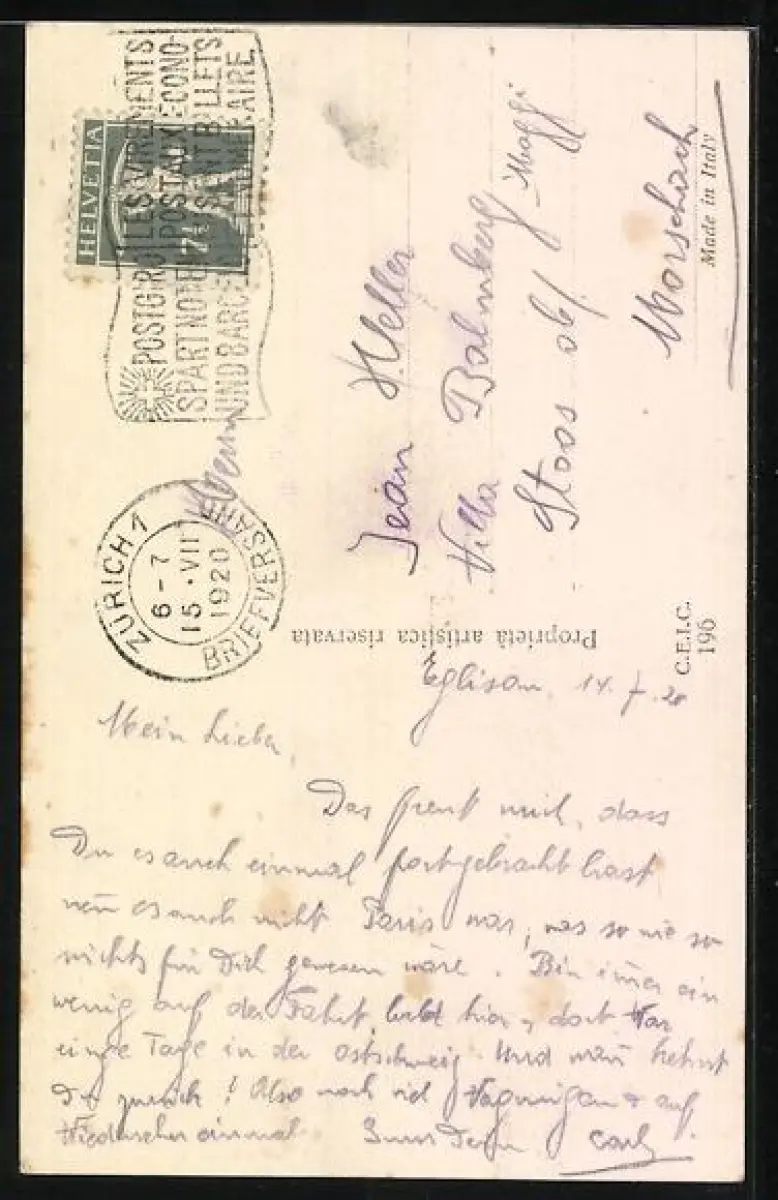 HELVETIA
7½
POSTGIRO LES VIREMENTS
SPARTNOTEN POSTAUX ECONO-
UND BARGE BILLETS
AIRE.
ZÜRICH 1
6-7
15.VII
1920
BRIEFVERSAND
Herrn
Jean Weller
Villa Balmberg (Maggi
Stoos ob/
Morschach
Made in Italy
Proprietà artistica riservata
C.E.I.C.
196
Eglisau, 14.7.20
Mein Lieber,
Das freut mich, dass
Du es auch einmal fortgebracht hast
wenn es auch nicht Paris war, was so wie so
nichts für Dich gewesen wäre. Bin immer ein
wenig auf der Fahrt, bald hier, dort. War
einige Tage in der Ostschweiz. Und wann kehrst
Du zurück! Also noch viel Vergnügen & auf
Wiedersehen einmal Dein Carl